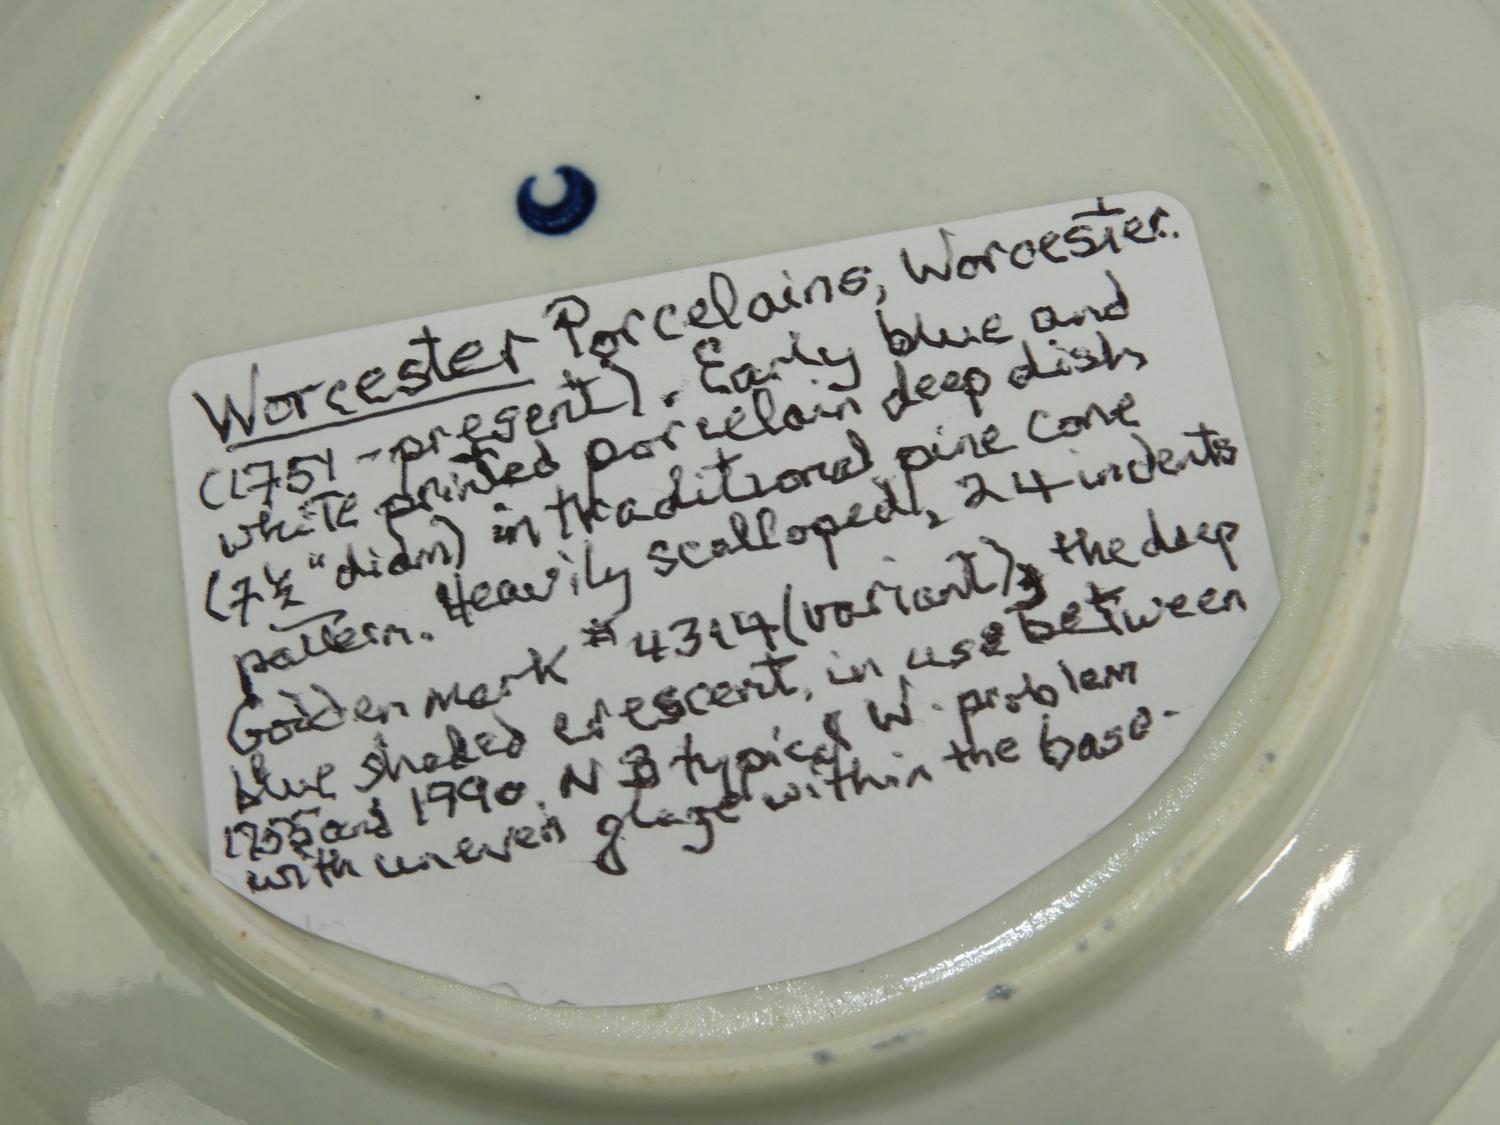 Worcester Porcelains, Worcester.
(1751-present). Early blue and
white printed porcelain deep dish
(7½" diam) in traditional pine cone
pattern. Heavily scalloped, 24 indents
Godden mark #4314 (variant), the deep
blue shaded crescent, in use between
1755 and 1990. NB typical W. problem
with uneven glaze within the base.